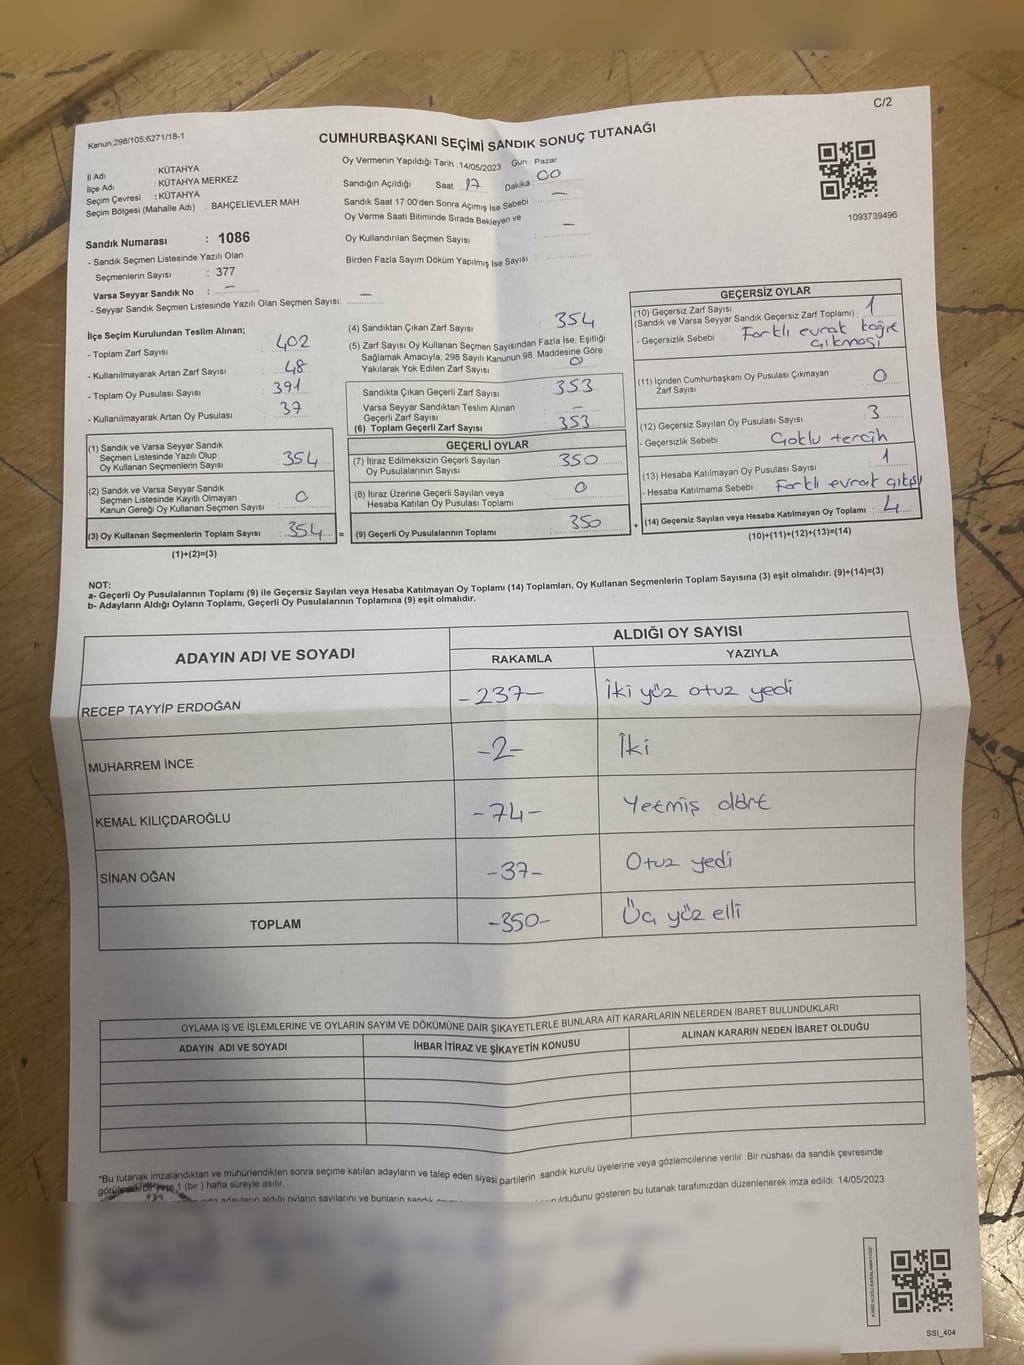 C/2
Kanun:298/105;6271/18-1
CUMHURBAŞKANI SEÇİMİ SANDIK SONUÇ TUTANAĞI
İl Adı : KÜTAHYA
İlçe Adı : KÜTAHYA MERKEZ
Seçim Çevresi : KÜTAHYA
Seçim Bölgesi (Mahalle Adı) : BAHÇELİEVLER MAH
Oy Vermenin Yapıldığı Tarih : 14/05/2023 Gün : Pazar
Sandığın Açıldığı Saat 17 Dakika 00
Sandık Saat 17:00'den Sonra Açımış İse Sebebi : —
Oy Verme Saati Bitiminde Sırada Bekleyen ve
Oy Kullandırılan Seçmen Sayısı : —
Birden Fazla Sayım Döküm Yapılmış İse Sayısı :
1093739496
Sandık Numarası : 1086
- Sandık Seçmen Listesinde Yazılı Olan
Seçmenlerin Sayısı : 377
Varsa Seyyar Sandık No : —
- Seyyar Sandık Seçmen Listesinde Yazılı Olan Seçmen Sayısı: —
İlçe Seçim Kurulundan Teslim Alınan;
- Toplam Zarf Sayısı : 402
- Kullanılmayarak Artan Zarf Sayısı : 48
- Toplam Oy Pusulası Sayısı : 391
- Kullanılmayarak Artan Oy Pusulası : 37
(1) Sandık ve Varsa Seyyar Sandık
Seçmen Listesinde Yazılı Olup
Oy Kullanan Seçmenlerin Sayısı : 354
(2) Sandık ve Varsa Seyyar Sandık
Seçmen Listesinde Kayıtlı Olmayan
Kanun Gereği Oy Kullanan Seçmen Sayısı : 0
(3) Oy Kullanan Seçmenlerin Toplam Sayısı : 354 =
(1)+(2)=(3)
(4) Sandıktan Çıkan Zarf Sayısı : 354
(5) Zarf Sayısı Oy Kullanan Seçmen Sayısından Fazla İse, Eşitliği
Sağlamak Amacıyla; 298 Sayılı Kanunun 98. Maddesine Göre
Yakılarak Yok Edilen Zarf Sayısı : 0
Sandıkta Çıkan Geçerli Zarf Sayısı : 353
Varsa Seyyar Sandıktan Teslim Alınan
Geçerli Zarf Sayısı : —
(6) Toplam Geçerli Zarf Sayısı : 353
GEÇERLİ OYLAR
(7) İtiraz Edilmeksizin Geçerli Sayılan
Oy Pusulalarının Sayısı : 350
(8) İtiraz Üzerine Geçerli Sayılan veya
Hesaba Katılan Oy Pusulası Toplamı : 0
(9) Geçerli Oy Pusulalarının Toplamı : 350 +
GEÇERSİZ OYLAR
(10) Geçersiz Zarf Sayısı : 1
(Sandık ve Varsa Seyyar Sandık Geçersiz Zarf Toplamı)
- Geçersizlik Sebebi : Farklı evrak kağıt
çıkması
(11) İçinden Cumhurbaşkanı Oy Pusulası Çıkmayan
Zarf Sayısı : 0
(12) Geçersiz Sayılan Oy Pusulası Sayısı : 3
- Geçersizlik Sebebi : Çoklu tercih
(13) Hesaba Katılmayan Oy Pusulası Sayısı : 1
- Hesaba Katılmama Sebebi : Farklı evrak çıkışı
(14) Geçersiz Sayılan veya Hesaba Katılmayan Oy Toplamı : 4
(10)+(11)+(12)+(13)=(14)
NOT:
a- Geçerli Oy Pusulalarının Toplamı (9) ile Geçersiz Sayılan veya Hesaba Katılmayan Oy Toplamı (14) Toplamları, Oy Kullanan Seçmenlerin Toplam Sayısına (3) eşit olmalıdır. (9)+(14)=(3)
b- Adayların Aldığı Oyların Toplamı, Geçerli Oy Pusulalarının Toplamına (9) eşit olmalıdır.
ADAYIN ADI VE SOYADI ALDIĞI OY SAYISI
RAKAMLA YAZIYLA
RECEP TAYYİP ERDOĞAN -237- İki yüz otuz yedi
MUHARREM İNCE -2- İki
KEMAL KILIÇDAROĞLU -74- Yetmiş dört
SİNAN OĞAN -37- Otuz yedi
TOPLAM -350- Üç yüz elli
OYLAMA İŞ VE İŞLEMLERİNE VE OYLARIN SAYIM VE DÖKÜMÜNE DAİR ŞİKAYETLERLE BUNLARA AİT KARARLARIN NELERDEN İBARET BULUNDUKLARI
ADAYIN ADI VE SOYADI İHBAR İTİRAZ VE ŞİKAYETİN KONUSU ALINAN KARARIN NEDEN İBARET OLDUĞU
*Bu tutanak imzalandıktan ve mühürlendikten sonra seçime katılan adayların ve talep eden siyasi partilerin sandık kurulu üyelerine veya gözlemcilerine verilir. Bir nüshası da sandık çevresinde
1 (bir) hafta süreyle asılır.
adayların aldığı oyların sayılarını ve bunların sandık gösteren bu tutanak tarafımızdan düzenlenerek imza edildi. 14/05/2023
SSI_404